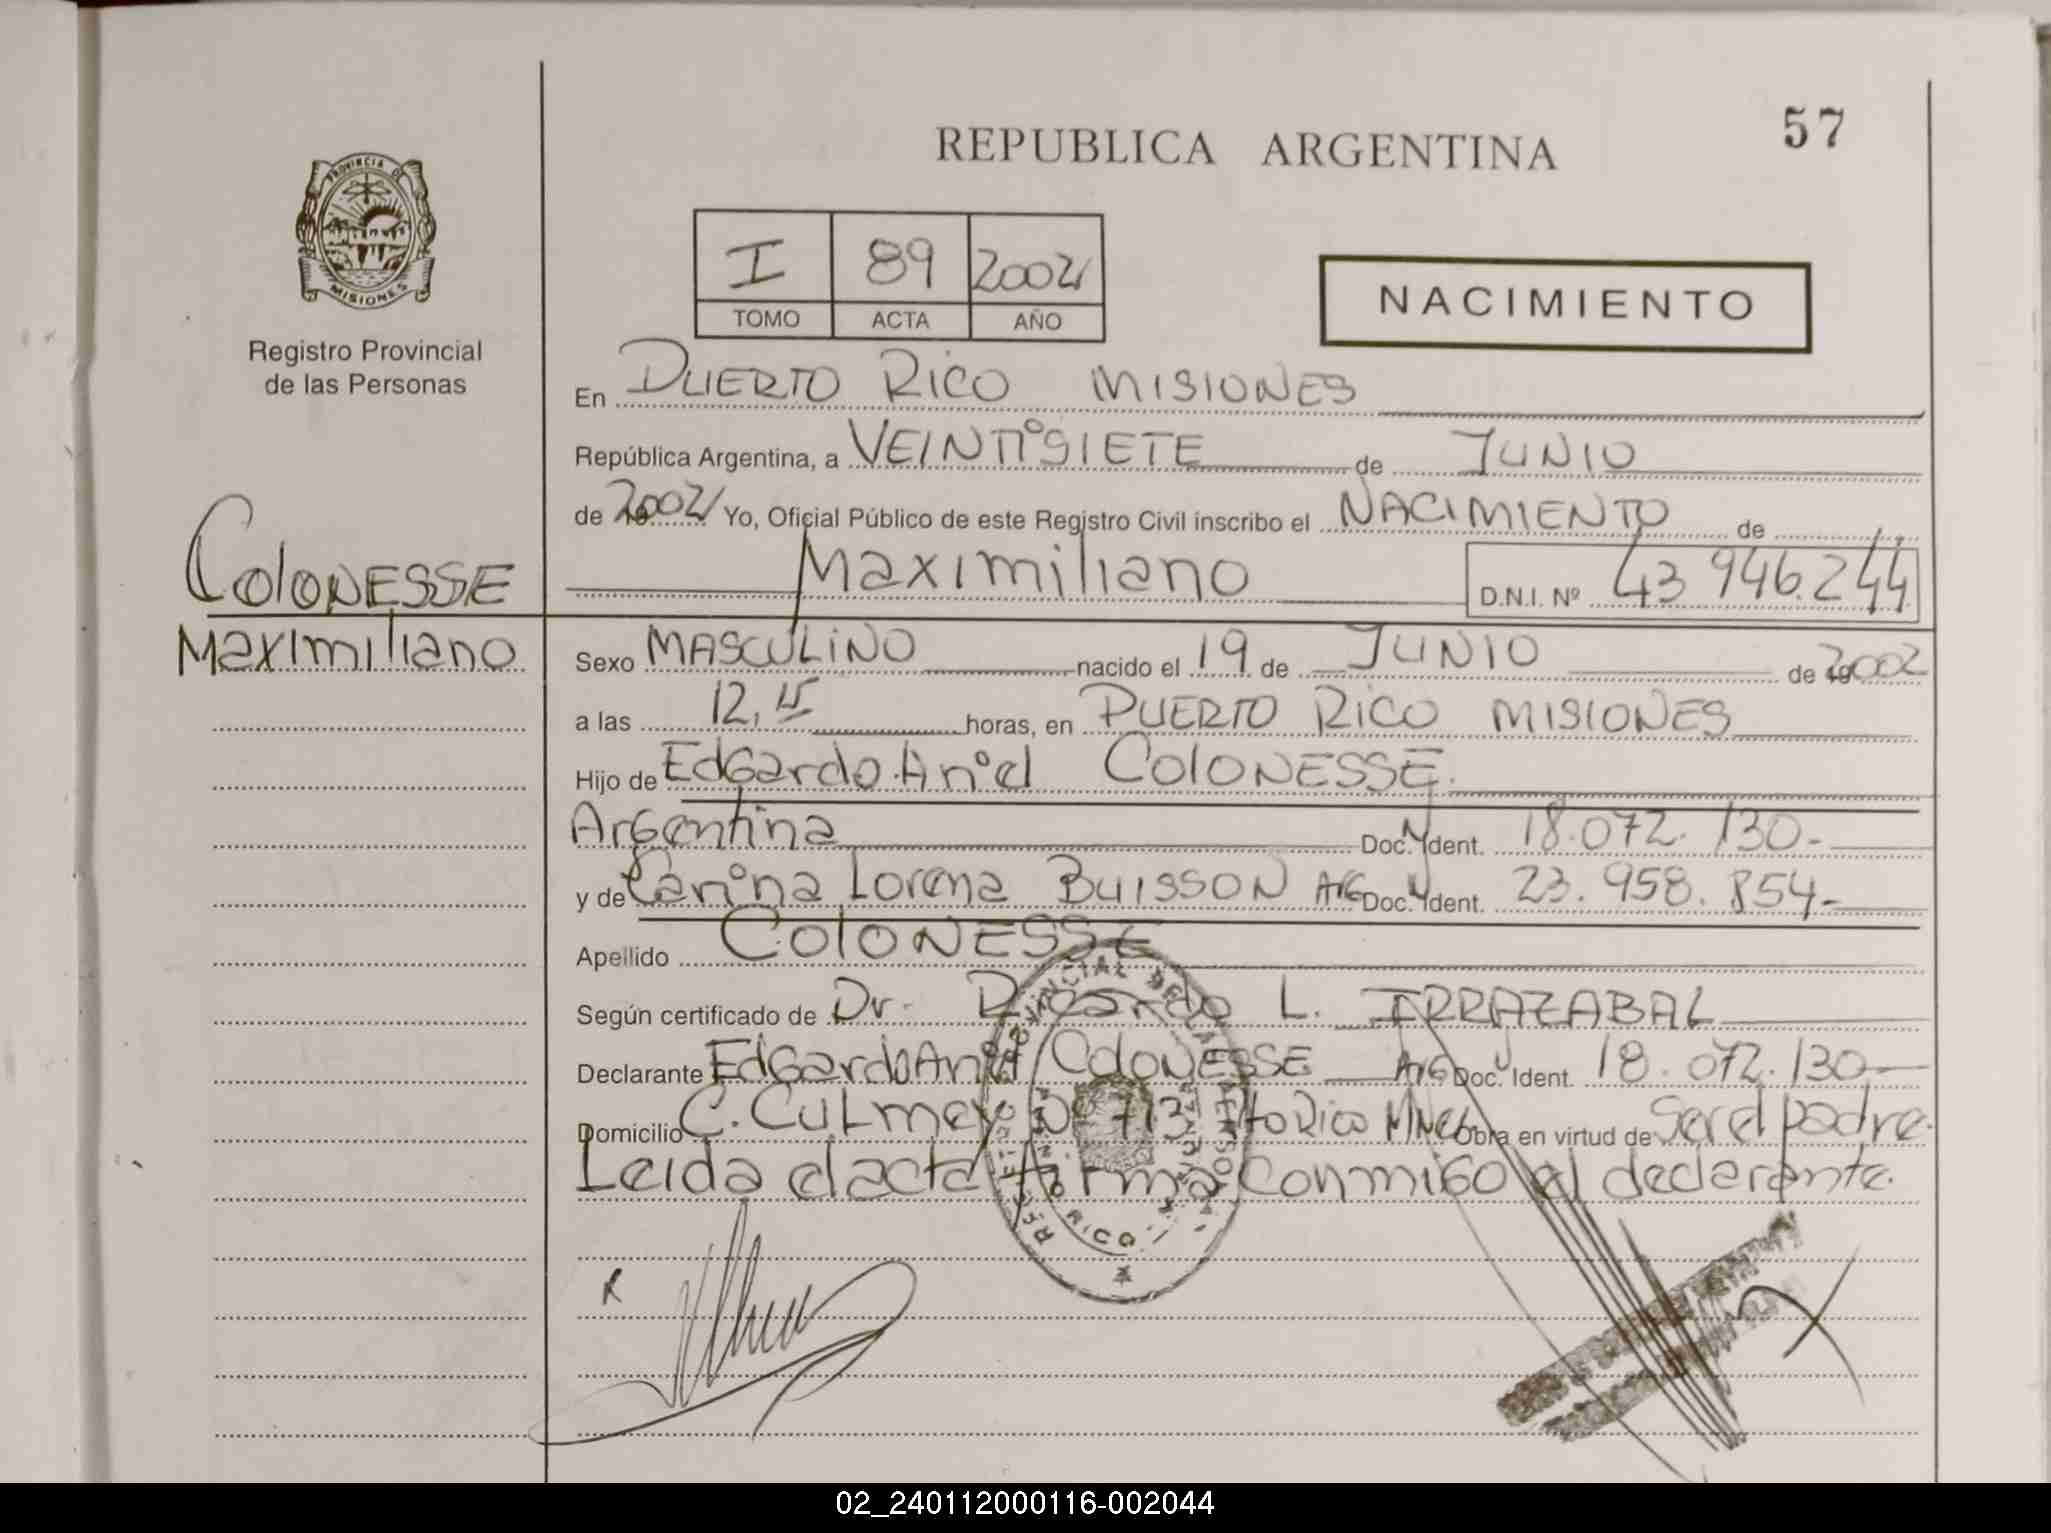 REPUBLICA ARGENTINA
57
PROVINCIA DE
MISIONES
Registro Provincial
de las Personas
I 89 2002
TOMO ACTA AÑO
NACIMIENTO
En PUERTO RICO MISIONES
República Argentina, a VEINTISIETE de JUNIO
de 2002 Yo, Oficial Público de este Registro Civil inscribo el NACIMIENTO de
Maximiliano D.N.I. Nº 43 946.244
COLONESSE
Maximiliano
Sexo MASCULINO nacido el 19 de JUNIO de 2002
a las 12,15 horas, en PUERTO RICO MISIONES
Hijo de Edgardo Ariel COLONESSE
Argentina Doc. Ident. 18.072.130.-
y de Carina Lorena BUISSON Arg Doc. Ident. 23.958.854.-
Apellido COLONESSE
Según certificado de Dr. Ricardo L. IRRAZABAL
Declarante Edgardo Ariel COLONESSE Arg Doc. Ident. 18.072.130.-
Domicilio C. Culmey Nº 713 Pto Rico Mnes Obra en virtud de Ser el padre.
Leida el acta firma conmigo el declarante.
RICO
02_240112000116-002044